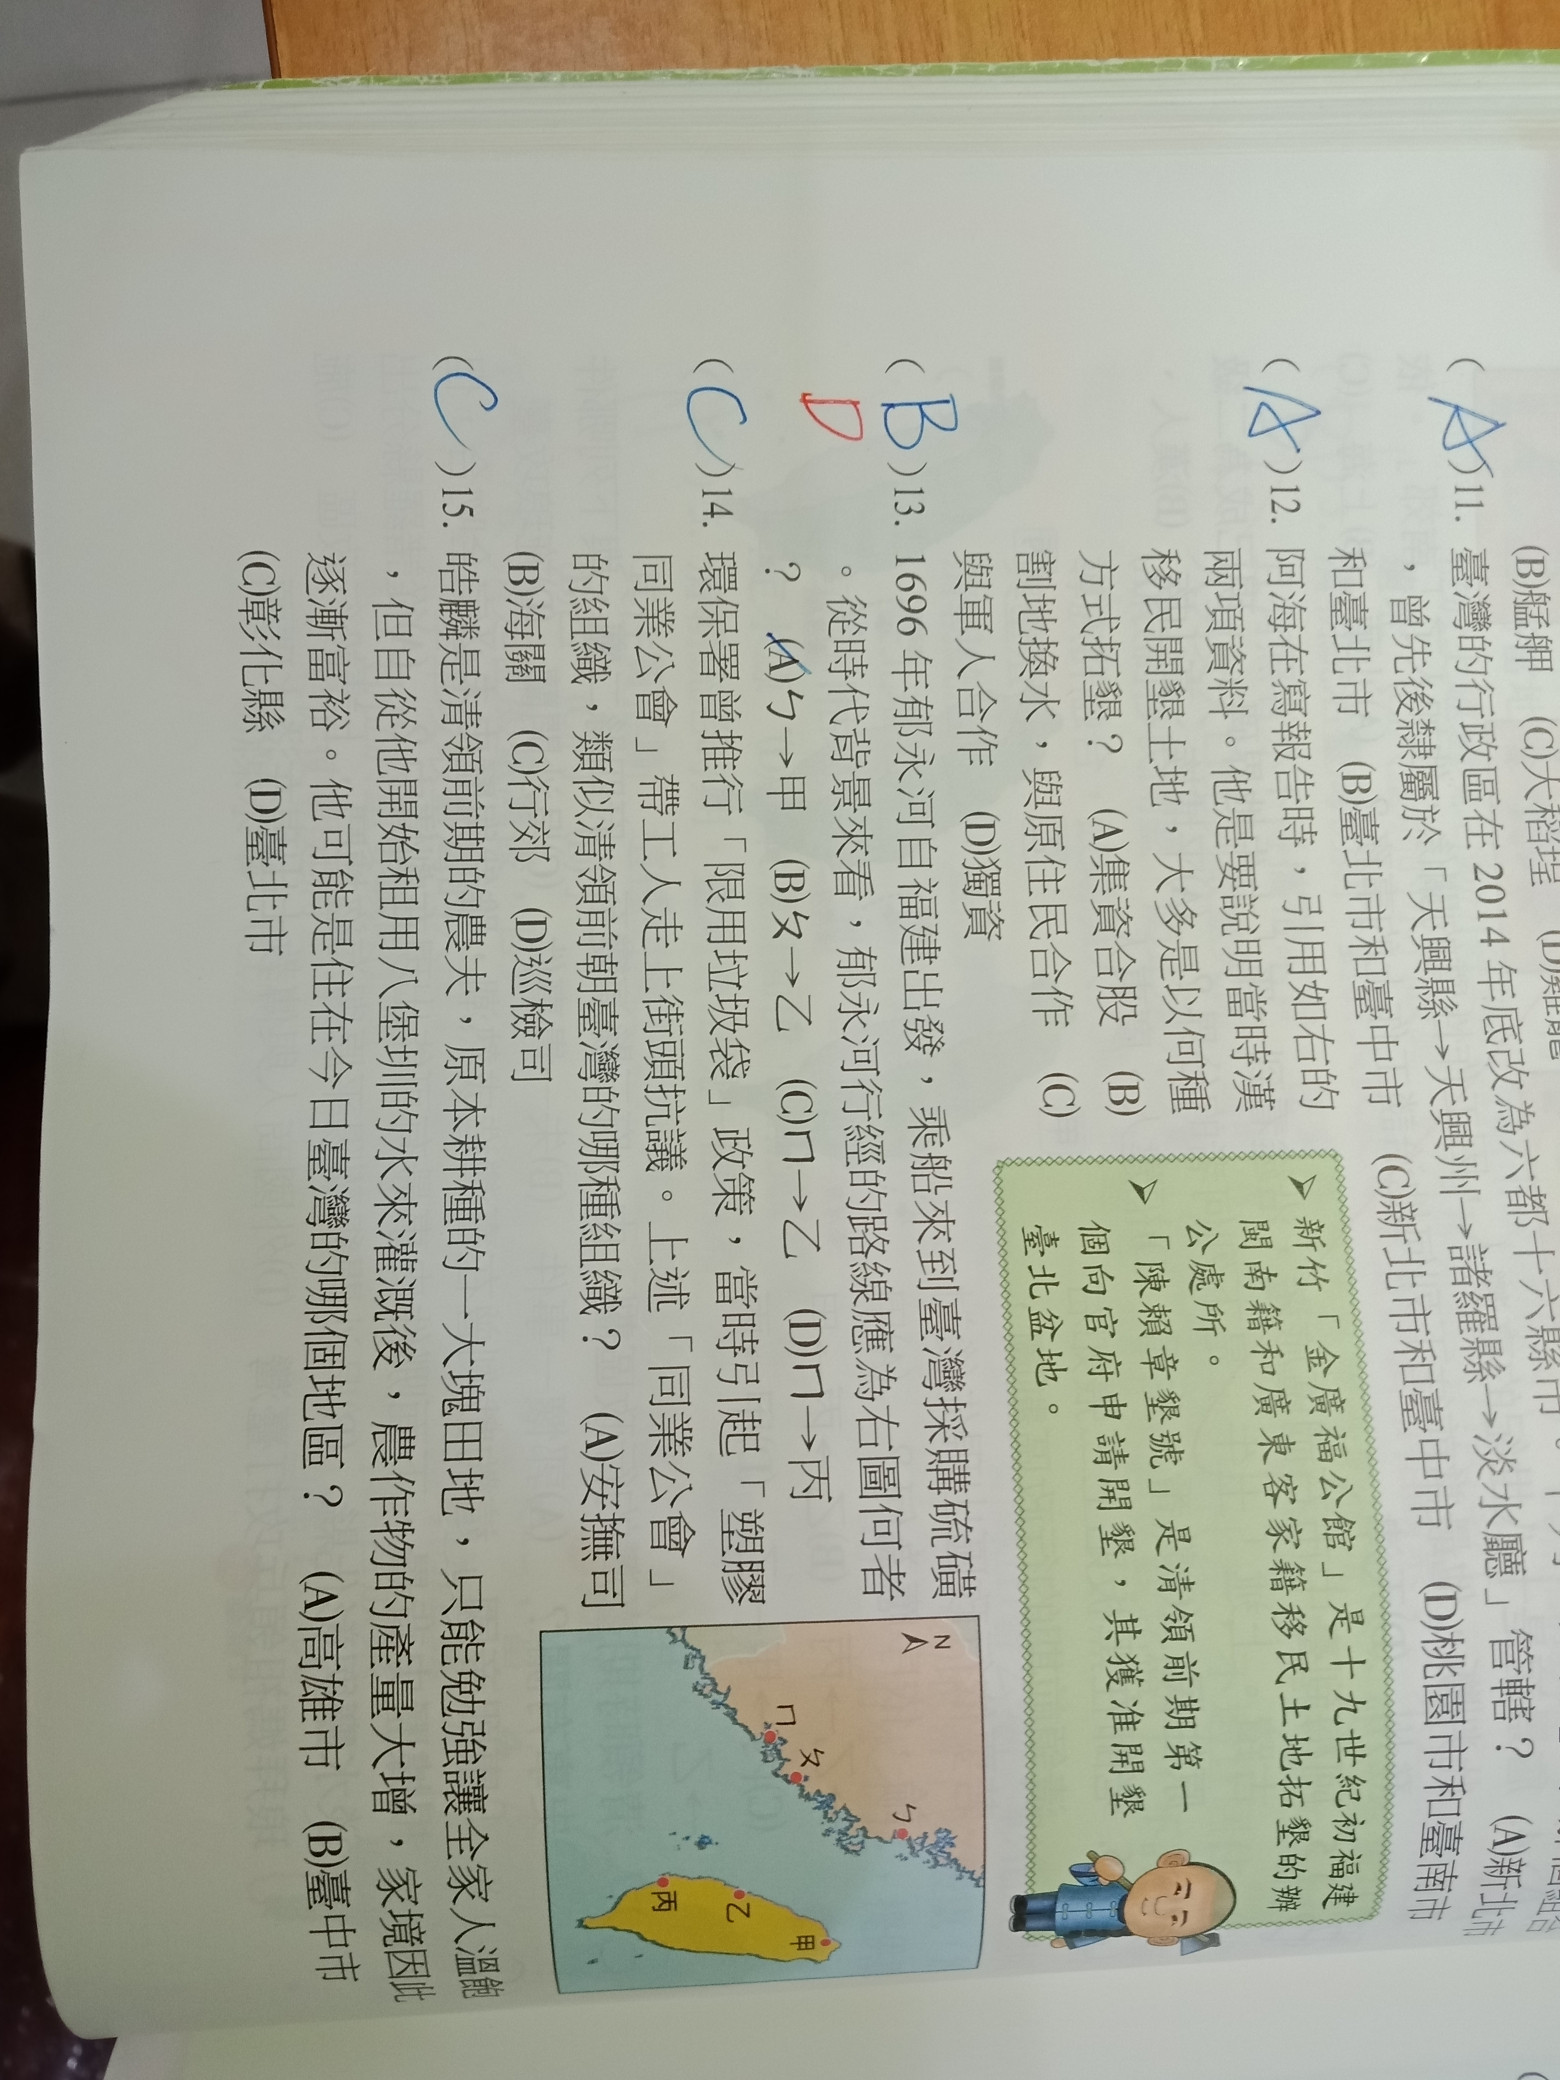 (B)艋舺　(C)大稻埕
( A )11. 臺灣的行政區在 2014 年底改為六都十六縣市
，曾先後隸屬於「天興縣→天興州→諸羅縣→淡水廳」管轄？　(A)新北市
和臺北市　(B)臺北市和臺中市　(C)新北市和臺中市　(D)桃園市和臺南市
( A )12. 阿海在寫報告時，引用如右的
兩項資料。他是要說明當時漢
移民開墾土地，大多是以何種
方式拓墾？　(A)集資合股　(B)
割地換水，與原住民合作　(C)
與軍人合作　(D)獨資
➤ 新竹「金廣福公館」是十九世紀初福建
閩南籍和廣東客家籍移民土地拓墾的辦
公處所。
➤ 「陳賴章墾號」是清領前期第一
個向官府申請開墾，其獲准開墾
臺北盆地。
( B )13. 1696 年郁永河自福建出發，乘船來到臺灣採購硫磺
D
。從時代背景來看，郁永河行經的路線應為右圖何者
？　(A)ㄅ→甲　(B)ㄆ→乙　(C)ㄇ→乙　(D)ㄇ→丙
N
ㄇ
ㄆ
ㄅ
甲
乙
丙
( C )14. 環保署曾推行「限用垃圾袋」政策，當時引起「塑膠
同業公會」帶工人走上街頭抗議。上述「同業公會」
的組織，類似清領前朝臺灣的哪種組織？　(A)安撫司
(B)海關　(C)行郊　(D)巡檢司
( C )15. 皓麟是清領前期的農夫，原本耕種的一大塊田地，只能勉強讓全家人溫飽
，但自從他開始租用八堡圳的水來灌溉後，農作物的產量大增，家境因此
逐漸富裕。他可能是住在今日臺灣的哪個地區？　(A)高雄市　(B)臺中市
(C)彰化縣　(D)臺北市